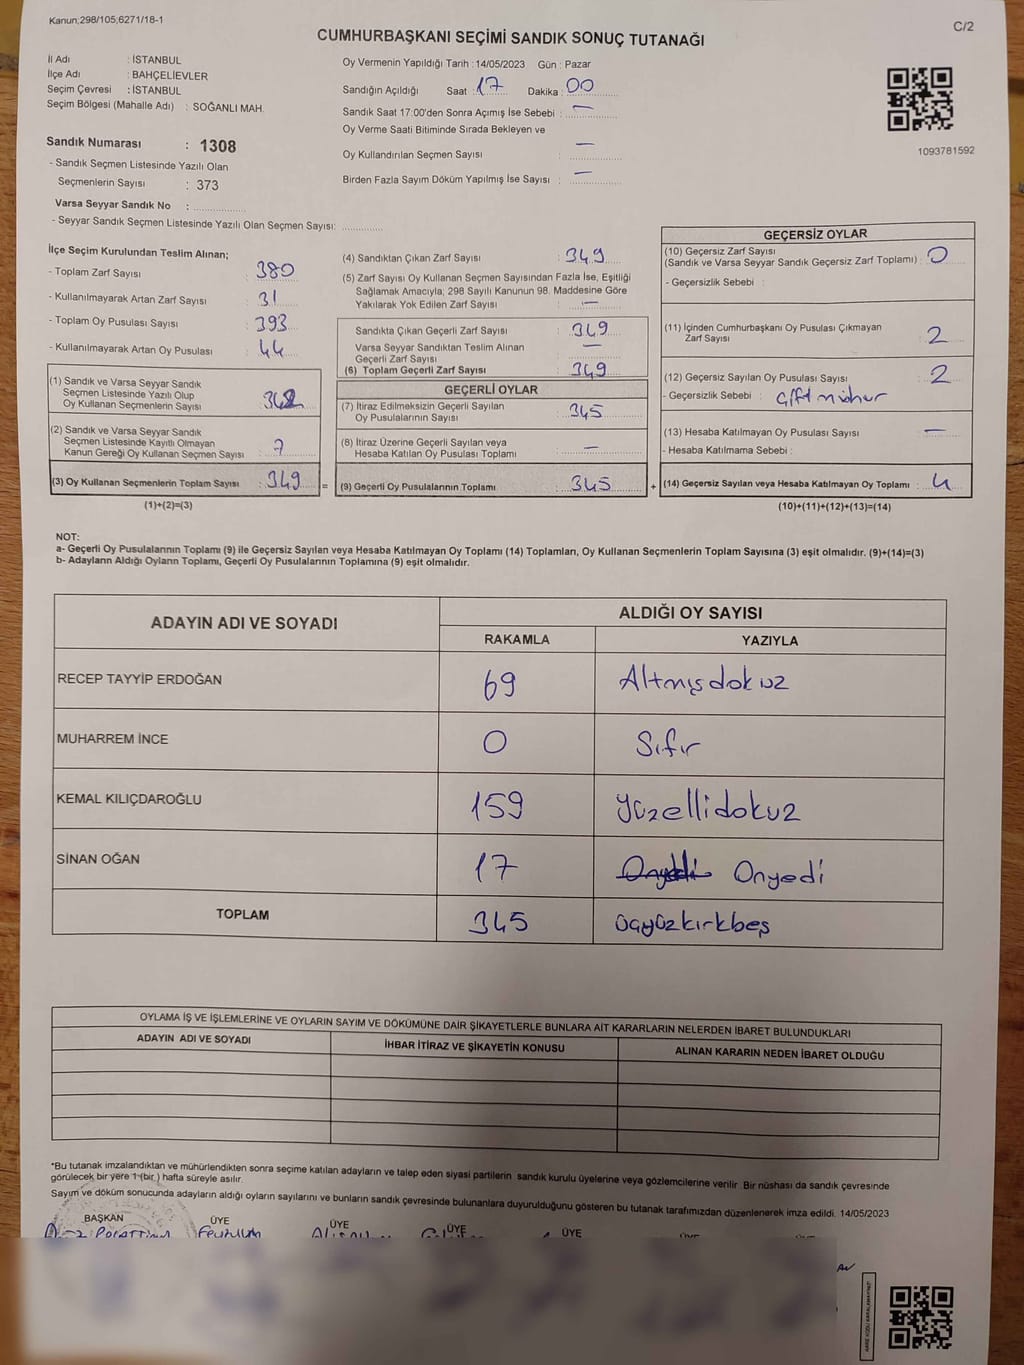 Kanun;298/105;6271/18-1
C/2
CUMHURBAŞKANI SEÇİMİ SANDIK SONUÇ TUTANAĞI
İl Adı : İSTANBUL
İlçe Adı : BAHÇELİEVLER
Seçim Çevresi : İSTANBUL
Seçim Bölgesi (Mahalle Adı) : SOĞANLI MAH.
Oy Vermenin Yapıldığı Tarih : 14/05/2023 Gün : Pazar
Sandığın Açıldığı Saat : 17 Dakika : 00
Sandık Saat 17:00'den Sonra Açımış İse Sebebi : —
Oy Verme Saati Bitiminde Sırada Bekleyen ve
Oy Kullandırılan Seçmen Sayısı : —
Birden Fazla Sayım Döküm Yapılmış İse Sayısı : —
1093781592
Sandık Numarası : 1308
- Sandık Seçmen Listesinde Yazılı Olan
Seçmenlerin Sayısı : 373
Varsa Seyyar Sandık No :
- Seyyar Sandık Seçmen Listesinde Yazılı Olan Seçmen Sayısı:
İlçe Seçim Kurulundan Teslim Alınan;
- Toplam Zarf Sayısı : 380
- Kullanılmayarak Artan Zarf Sayısı : 31
- Toplam Oy Pusulası Sayısı : 393
- Kullanılmayarak Artan Oy Pusulası : 44
(1) Sandık ve Varsa Seyyar Sandık
Seçmen Listesinde Yazılı Olup
Oy Kullanan Seçmenlerin Sayısı : 342
(2) Sandık ve Varsa Seyyar Sandık
Seçmen Listesinde Kayıtlı Olmayan
Kanun Gereği Oy Kullanan Seçmen Sayısı : 7
(3) Oy Kullanan Seçmenlerin Toplam Sayısı : 349 =
(1)+(2)=(3)
(4) Sandıktan Çıkan Zarf Sayısı : 349
(5) Zarf Sayısı Oy Kullanan Seçmen Sayısından Fazla İse, Eşitliği
Sağlamak Amacıyla; 298 Sayılı Kanunun 98. Maddesine Göre
Yakılarak Yok Edilen Zarf Sayısı : —
Sandıkta Çıkan Geçerli Zarf Sayısı : 349
Varsa Seyyar Sandıktan Teslim Alınan —
Geçerli Zarf Sayısı
(6) Toplam Geçerli Zarf Sayısı : 349
GEÇERLİ OYLAR
(7) İtiraz Edilmeksizin Geçerli Sayılan
Oy Pusulalarının Sayısı : 345
(8) İtiraz Üzerine Geçerli Sayılan veya
Hesaba Katılan Oy Pusulası Toplamı : —
(9) Geçerli Oy Pusulalarının Toplamı : 345 +
GEÇERSİZ OYLAR
(10) Geçersiz Zarf Sayısı
(Sandık ve Varsa Seyyar Sandık Geçersiz Zarf Toplamı) : 0
- Geçersizlik Sebebi :
(11) İçinden Cumhurbaşkanı Oy Pusulası Çıkmayan
Zarf Sayısı : 2
(12) Geçersiz Sayılan Oy Pusulası Sayısı : 2
- Geçersizlik Sebebi : Çift mühür
(13) Hesaba Katılmayan Oy Pusulası Sayısı : —
- Hesaba Katılmama Sebebi :
(14) Geçersiz Sayılan veya Hesaba Katılmayan Oy Toplamı : 4
(10)+(11)+(12)+(13)=(14)
NOT:
a- Geçerli Oy Pusulalarının Toplamı (9) ile Geçersiz Sayılan veya Hesaba Katılmayan Oy Toplamı (14) Toplamları, Oy Kullanan Seçmenlerin Toplam Sayısına (3) eşit olmalıdır. (9)+(14)=(3)
b- Adayların Aldığı Oyların Toplamı, Geçerli Oy Pusulalarının Toplamına (9) eşit olmalıdır.
ADAYIN ADI VE SOYADI
ALDIĞI OY SAYISI
RAKAMLA YAZIYLA
RECEP TAYYİP ERDOĞAN 69 Altmışdokuz
MUHARREM İNCE 0 Sıfır
KEMAL KILIÇDAROĞLU 159 Yüzellidokuz
SİNAN OĞAN 17 Onyedi Onyedi
TOPLAM 345 üçyüzkırkbeş
OYLAMA İŞ VE İŞLEMLERİNE VE OYLARIN SAYIM VE DÖKÜMÜNE DAİR ŞİKAYETLERLE BUNLARA AİT KARARLARIN NELERDEN İBARET BULUNDUKLARI
ADAYIN ADI VE SOYADI İHBAR İTİRAZ VE ŞİKAYETİN KONUSU ALINAN KARARIN NEDEN İBARET OLDUĞU
*Bu tutanak imzalandıktan ve mühürlendikten sonra seçime katılan adayların ve talep eden siyasi partilerin sandık kurulu üyelerine veya gözlemcilerine verilir. Bir nüshası da sandık çevresinde
görülecek bir yere 1 (bir) hafta süreyle asılır.
Sayım ve döküm sonucunda adayların aldığı oyların sayılarını ve bunların sandık çevresinde bulunanlara duyurulduğunu gösteren bu tutanak tarafımızdan düzenlenerek imza edildi. 14/05/2023
BAŞKAN ÜYE ÜYE ÜYE ÜYE